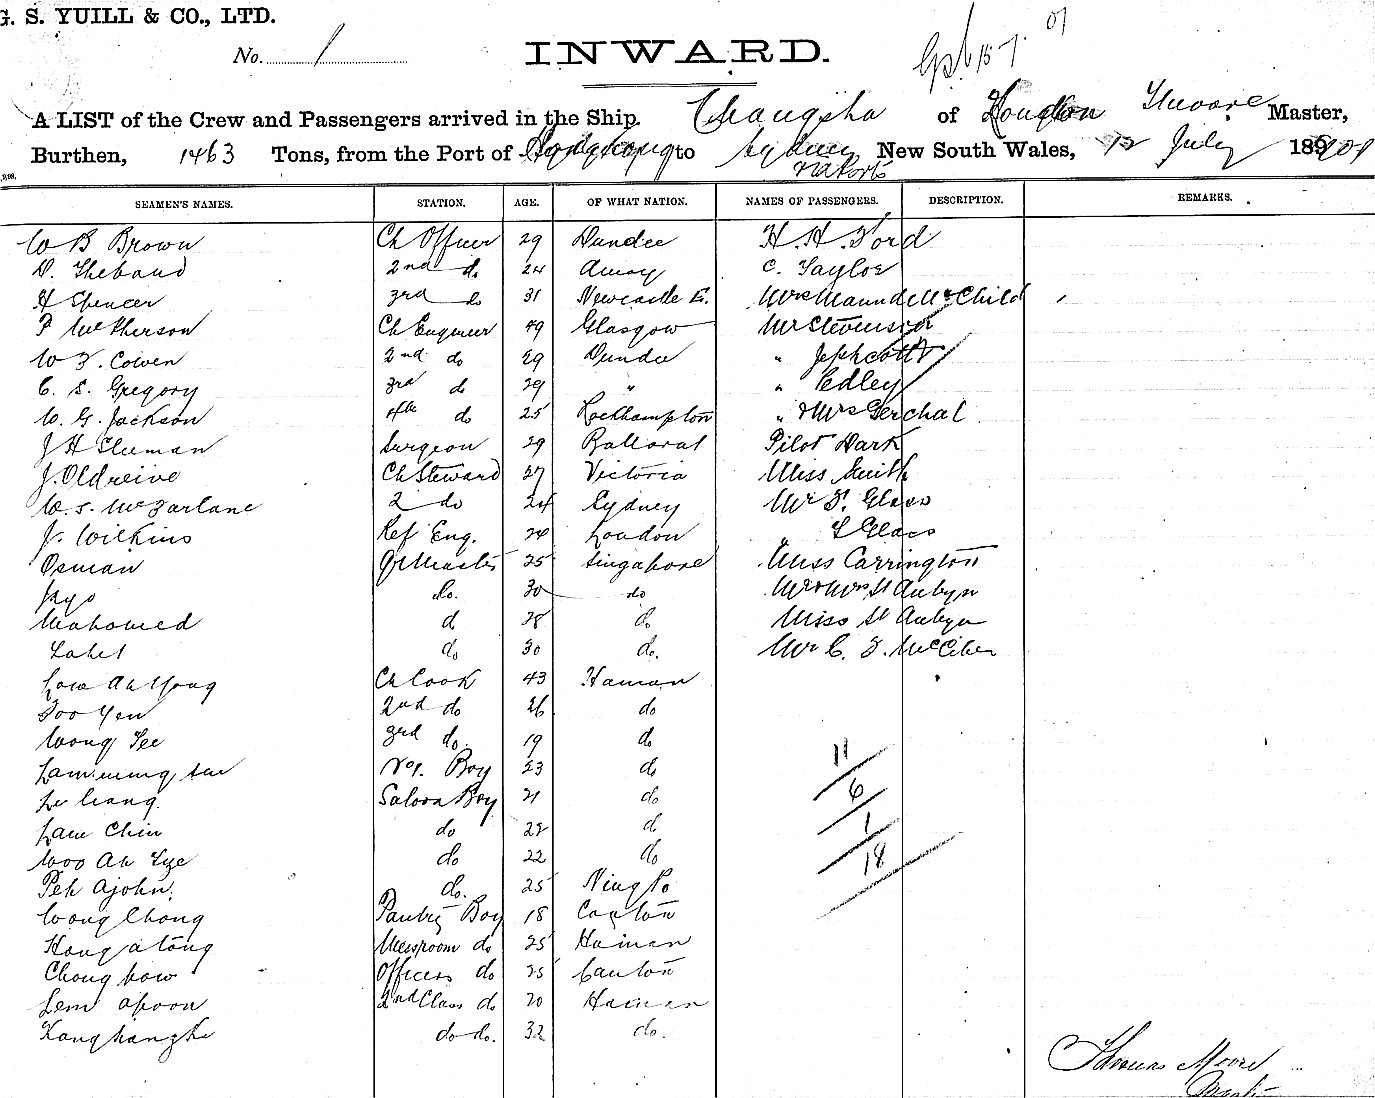 G. S. YUILL & CO., LTD.
No. 1
INWARD.
15-7. 01
A LIST of the Crew and Passengers arrived in the Ship. Changsha of London T Moore Master,
Burthen, 1463 Tons, from the Port of Hongkong to Sydney New South Wales, 12 July 1901
via Ports
SEAMEN'S NAMES. STATION. AGE. OF WHAT NATION. NAMES OF PASSENGERS. DESCRIPTION. REMARKS.
W B Brown Ch Officer 29 Dundee H. H. Ford
D. Thebaud 2nd do 24 Amoy C. Taylor
H Spencer 3rd do 31 Newcastle E. Mrs Maundell & Child
P McPherson Ch Engineer 49 Glasgow Mr Stevenson
W F. Cowen 2nd do 29 Dundee " Jephcott
C. S. Gregory 3rd do 29 " " Edley
W. G. Jackson 4th do 25 Rockhampton " & Mrs Gerchal
J H Sleeman Surgeon 29 Ballarat Pilot Dark
J. Oldreive Ch Steward 27 Victoria Miss Smith
W. S. McFarlane 2 do 24 Sydney Mr F. Glass
J. Wilkins Ref Eng. London " L Glass
Osman Qr Master 25 Singapore Miss Carrington
do. 30 do Mr & Mrs St Aubyn
Mahomed d 28 do Miss St Aubyn
do 30 do. Mr C. F.
Low Ah Yong Ch Cook 43 Hainan
Foo Yen 2nd do 26 do
Wong See 3rd do. 19 do 11
No 1. Boy 23 do 6
Saloon Boy 21 do 1
Lam Chin do 22 d 18
Woo Ah do 22 do
Peh Ajohn. do. 25 Ning Po
Wong Chong Pantry Boy 18 Canton
Hong a tong Messroom do 25 Hainan
Chong kow Officers do 25 Canton
Lem apoon 2nd Class do 20 Hainan
do do. 32 do.
Thomas Moore
Master